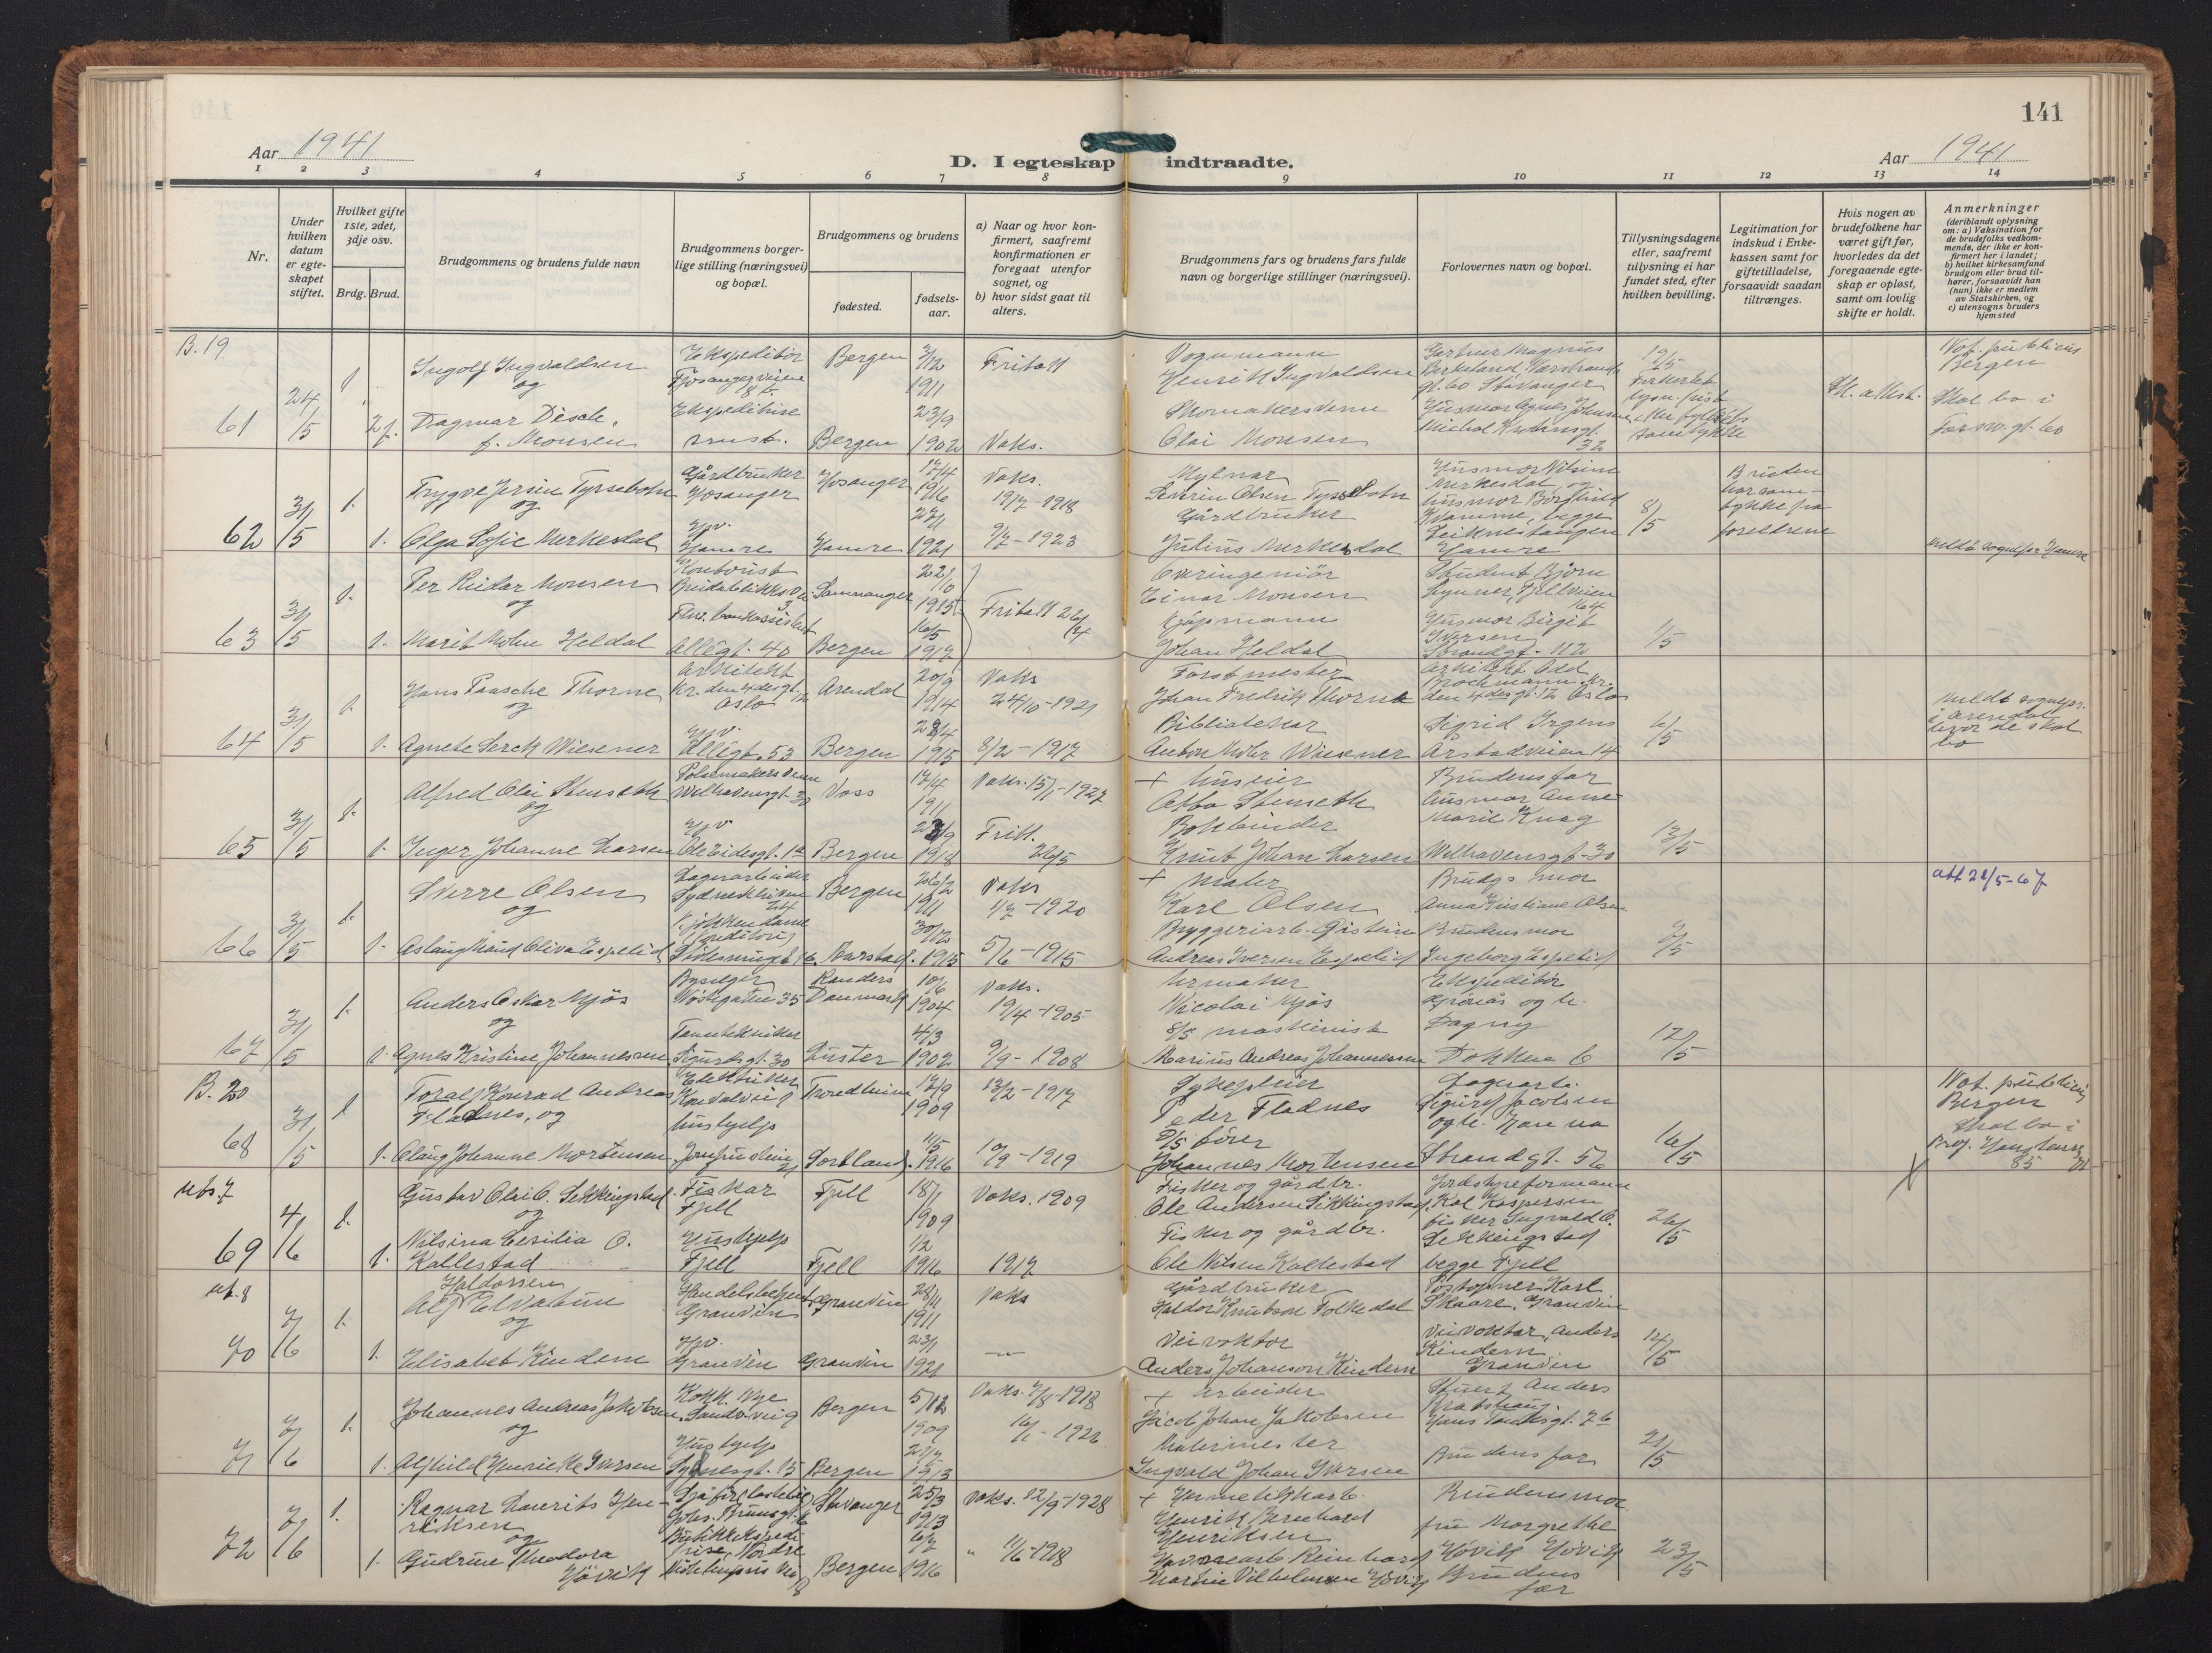 141
Aar 1941
D. I egteskap indtraadte.
Aar 1941
1 2 3 4 5 6 7 8 9 10 11 12 13 14
Nr.
Under hvilken datum er egteskapet stiftet.
Hvilket gifte 1ste, 2det, 3dje osv.
Brdg. Brud.
Brudgommens og brudens fulde navn
Brudgommens borgerlige stilling (næringsvei) og bopæl.
Brudgommens og brudens
fødested.
fødselsaar.
a) Naar og hvor konfirmert, saafremt konfirmationen er foregaat utenfor sognet, og
b) hvor sidst gaat til alters.
Brudgommens fars og brudens fars fulde navn og borgerlige stillinger (næringsvei).
Forlovernes navn og bopæl.
Tillysningsdagene eller, saafremt tillysning ei har fundet sted, efter hvilken bevilling.
Legitimation for indskud i Enkekassen samt for giftetilladelse, forsaavidt saadan tiltrænges.
Hvis nogen av brudefolkene har været gift før, hvorledes da det foregaaende egteskap er opløst, samt om lovlig skifte er holdt.
Anmerkninger
(deriblandt oplysning om: a) Vaksination for de brudefolks vedkommende, der ikke er konfirmert her i landet; b) hvilket kirkesamfund brudgom eller brud tilhører, forsaavidt han (hun) ikke er medlem av Statskirken, og c) utensogns bruders hjemsted
B. 19
61 24/5 1. Ingolf Ingvaldsen og
Ekspeditør Fjøsangerveien
Bergen 3/12 1911 Fritatt
Vognmann Henrik Ingvaldsen
Gartner Magnus Birkeland,
Stavanger
19/5
Not. publicus Bergen
2g. Dagmar Disch, f. Monsen
Ekspeditrise smst. Bergen 23/9 1902 Vaks.
Olai Monsen
Husmor Agnes Johnsen, Michal Krohnsgt. 32
Skal bo i
62 31/5 1. Trygve Jersin Tyssebotn og
Gårdbruker Hosanger
Hosanger 17/4 1916 Vaks. 1917-1918
Mylnar Severin Olsen Tyssebotn
Husmor Nilsine Merkesdal, og husmor Borghild Kvamme, begge Leiknestangen Hamre
8/5
Bruden har samtykke fra foreldrene
1. Olga Sofie Merkesdal
Hpv. Hamre Hamre 27/1 1921 9/7-1923
Gårdbruker Julius Merkesdal
meldt sognepr Hamre
63 31/5 1. Per Reidar Monsen og
Kontorist
Samnanger 22/10 1915
Fritatt 26/4
Overingeniør Einar Monsen
Student Bjørn Lynner, Fjellveien 164
1. Marit Mohn Heldal
Allégt. 40 Bergen 16/5 1917
Kjøpmann Johan Heldal
Husmor Birgit Iversen Strandgt. 112
1/5
64 31/5 1. Hans Paasche Thorne og
Arkitekt Kr. den 4des gt. 12 Oslo
Arendal 20/9 1914 Vaks 24/10-1921
Forstmester Johan Fredrik Thorne
Arkitekt Odd Brochmann, Kr. den 4des gt. 12 Oslo
meldt sognepr. i Arendal hvor de skal bo
1. Agnete Lerck Wiesener
Hpv. Allégt. 53 Bergen 28/4 1915 8/2-1917
Bibliotekar Anton Mohr Wiesener
Sigrid Irgens Årstadveien 14
6/5
65 31/5 1. Alfred Olai Stenseth og
Pølsemakersvenn Welhavensgt. 30
Voss 17/4 1911 Vaks. 15/1-1927
+ Huseier Otto Stenseth
Brudens far
1. Inger Johanne Larsen
Hpv Ole Eidesgt. 1a Bergen 23/9 1918 Fritt. 26/5
Bokbinder Knut Johan Larsen
husmor Anne Marie Knag Welhavensgt. 30
13/5
66 31/5 1. Sverre Olsen og
Lagerarbeider Sydneskleiven 24
Bergen 26/2 1911 Vaks 1/7-1920
+ Maler Karl Olsen
Brudgs mor Anna Kristiane Olsen
att 22/5-67
1. Aslaug Maud Oliva Espelid
Kjøkkendame
Harstad. 30/12 1915 5/6-1915
Bryggeriarb. Gistein Andreas Iversen Espelid
Brudens mor Ingeborg Espelid
7/5
67 31/5 1. Anders Oskar Mjös og
Byselger Nøstegaten 35
Randers Danmark 10/6 1904 Vaks. 19/4-1905
Urmaker Nicolai Mjös
Ekspeditør Grønås og h.
1. Agnes Kristine Johannessen
Tanntekniker Sigurdsgt. 30 Luster 4/3 1902 9/9-1908
S/S maskinist Marius Andreas Johannessen
Dagny Dokken 6
12/5
B. 20
68 31/5 1. Toralf Konrad Andreas Fladnes, og
Elektriker Konvalvei 9
Trondheim 17/9 1909 13/2-1917
Sykepleier Peder Fladnes
Lagerarb. Sigurd Jacobsen
Not. publicus Bergen skal bo i
1. Olaug Johanne Mortensen
hushjelp
Sortland. 11/5 1916 10/9-1919
D/S fører Johannes Mortensen
Strandgt. 56
16/5
85
uts. 7
69 4/6 1. Gustav Olai O. Sekkingstad og
Fiskar Fjell Fjell 18/1 1909 Vaks. 1909
Fisker og gårdbr. Ole Andersen Sekkingstad
Jordstyreformann Kol Kaspersen
1. Nilsina Cecilia O. Kallestad
Hushjelp Fjell Fjell 1/2 1916 1917
Fisker og gårdbr. Ole Nilsen Kallestad
fisker Ingvald O. Sekkingstad begge Fjell
26/5
uts. 8
70 7/6 1. Alf Haldorsen Elvatun og
Handelsbetjent Granvin Granvin 28/11 1911 Vaks
Gårdbruker Haldor Knutson Folkedal
Postopner Karl Skaare, Granvin
1. Elisabet Kindem
Hpv. Granvin Granvin 23/1 1921 —"—
Veivoktor Anders Johanson Kindem
Veivoktar, Anders Kindem. Granvin
14/5
71 7/6 1. Johannes Andreas Jakobsen og
Kokk. Nye Sandvvei 9 Bergen 5/12 1909 Vaks. 7/8-1918
+ Arbeider Jacob Johan Jakobsen
Stuert Anders
Hans Tanksgt. 7b
1. Alfhild Henrikke Iversen
Hushjelp Sydnesgt. 15 Bergen 1913 16/1-1926
Malermester Ingvald Johan Iversen
Brudens far
21/5
72 7/6 1. Ragnar Laurits Henriksen og
Stavanger 25/3 1913 Vaks. 22/9-1928
+ Hermetikkarb. Henrik Bernhard Henriksen
Brudens mor fru Margrethe Høvik
1. Gudrun Theodora Høvik
Butikkekspeditrise, Nordre
Bergen 6/7 1916 " 11/6-1918
Havnearb Reinhard Martin Vilhelmsen Høvik
Høvik Brudens far
23/5